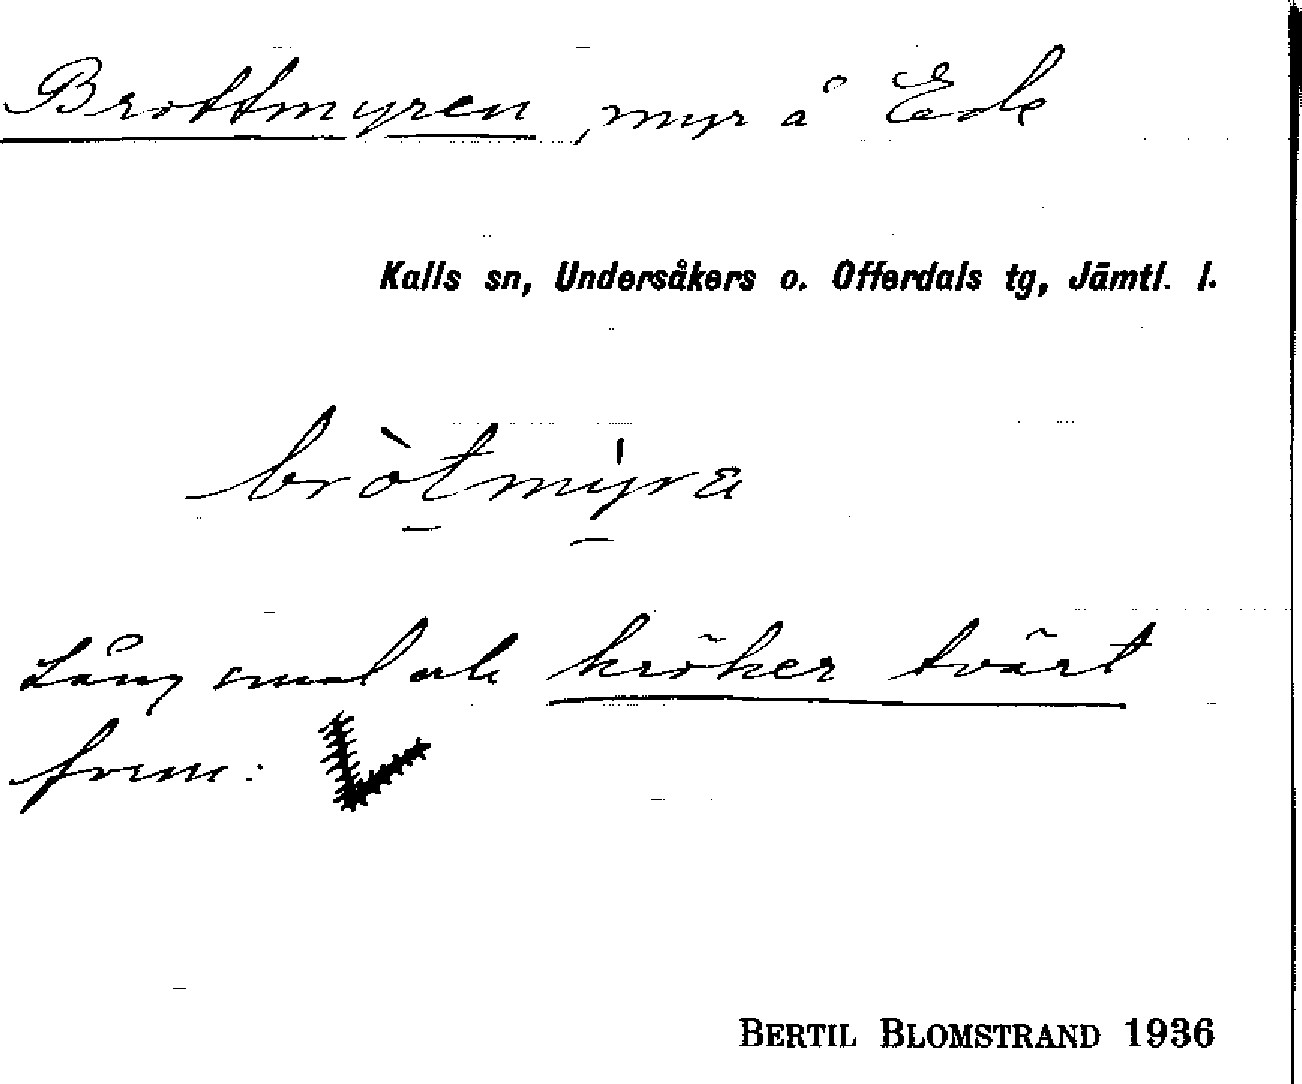 Brottmyren, myr å Ede
Kalls sn, Undersåkers o. Offerdals tg, Jämtl. l.
bròtmýra
Lång smal och kröker tvärt
fram:
BERTIL BLOMSTRAND 1936